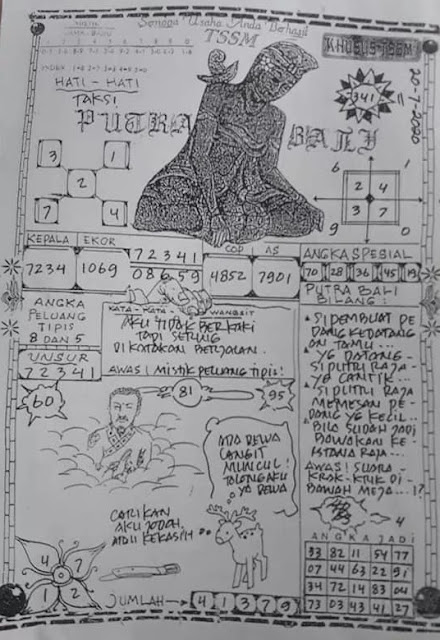 Semoga Usaha Anda Berhasil
TSSM
KHUSUS-TSSM
20-7-2020
341
HATI - HATI
TAKSI
PUTRA
BALI
3 1
2
7 4
6 1
2 4
3 7
9 0
KEPALA EKOR
7234 1069
72341
08659
COP AS
4852 7901
ANGKA SPESIAL
70 28 36 45 19
ANGKA
PELUANG
TIPIS
8 DAN 5
UNSUR
72341
KATA - KATA - WANGSIT
AKU TIDAK BERKAKI
TAPI SERING
DI KATAKAN BERJALAN.
AWAS! MISTIK PELUANG TIPIS!
PUTRA BALI
BILANG:
SI PEMBUAT PE
DANG KEDATANG
AN TAMU...
YG DATANG -
SI PUTRI RAJA-
YG CANTIK...
SI PUTRI RAJA
MEMESAN PE-
DANG YG KECIL..
BILA SUDAH JADI
BAWAKAN KE-
ISTANA RAJA...
AWAS! SUARA -
KROK-KTUK DI-
BAWAH MEJA...!?
60
81
95
ADA DEWA
LANGIT
MUNCUL!
TOLONG AKU
YA DEWA
CARIKAN
AKU JODOH,
ATAU KEKASIH
4 7
1 2
JUMLAH → 4 1 3 7 9
4
ANGKA JADI
33 82 11 54 77
07 44 63 22 91
34 72 14 83 04
73 03 43 41 27